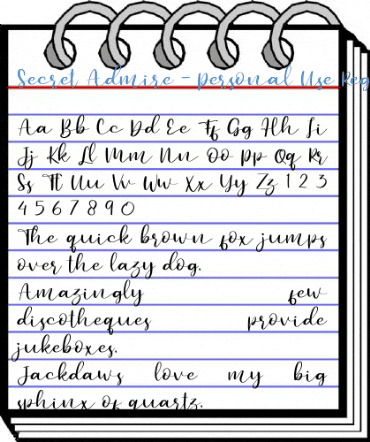 Secret Admire - Personal Use Reg
Aa Bb Cc Dd Ee Ff Gg Hh Ii
Jj Kk Ll Mm Nn Oo Pp Qq Rr
Ss Tt Uu Vv Ww Xx Yy Zz 1 2 3
4 5 6 7 8 9 0
The quick brown fox jumps
over the lazy dog.
Amazingly few
discotheques provide
jukeboxes.
Jackdaws love my big
sphinx of quartz.